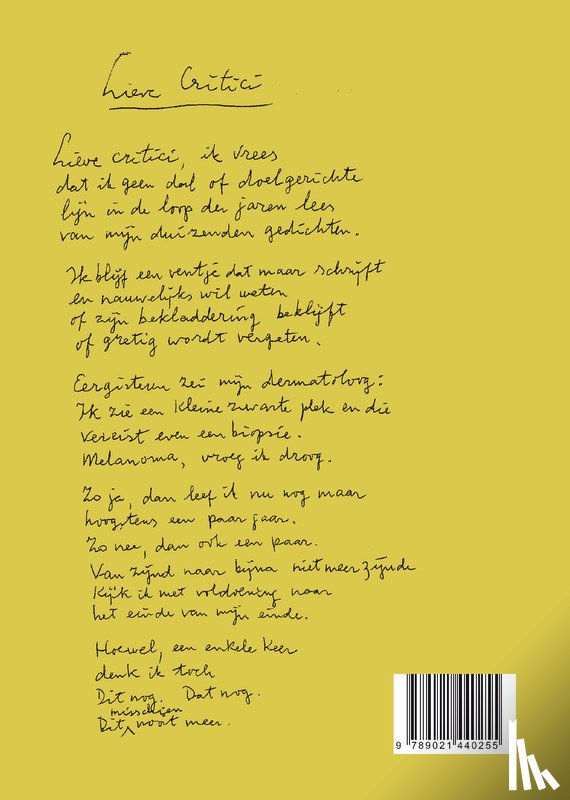 Lieve Critici
Lieve critici, ik vrees
dat ik geen doel of doelgerichte
lijn in de loop der jaren lees
van mijn duizenden gedichten.
Ik blijf een ventje dat maar schrijft
en nauwelijks wil weten
of zijn bekladdering beklijft
of gretig wordt vergeten.
Eergisteren zei mijn dermatoloog:
Ik zie een kleine zwarte plek en die
vereist even een biopsie.
Melanoma, vroeg ik droog.
Zo ja, dan leef ik nu nog maar
hoogstens een paar jaar.
Zo nee, dan ook een paar.
Van zijnd naar bijna niet meer zijnde
kijk ik met voldoening naar
het einde van mijn einde.
Hoewel, een enkele keer
denk ik toch
Dit nog. Dat nog.
misschien
Dit nooit meer.
9 789021 440255